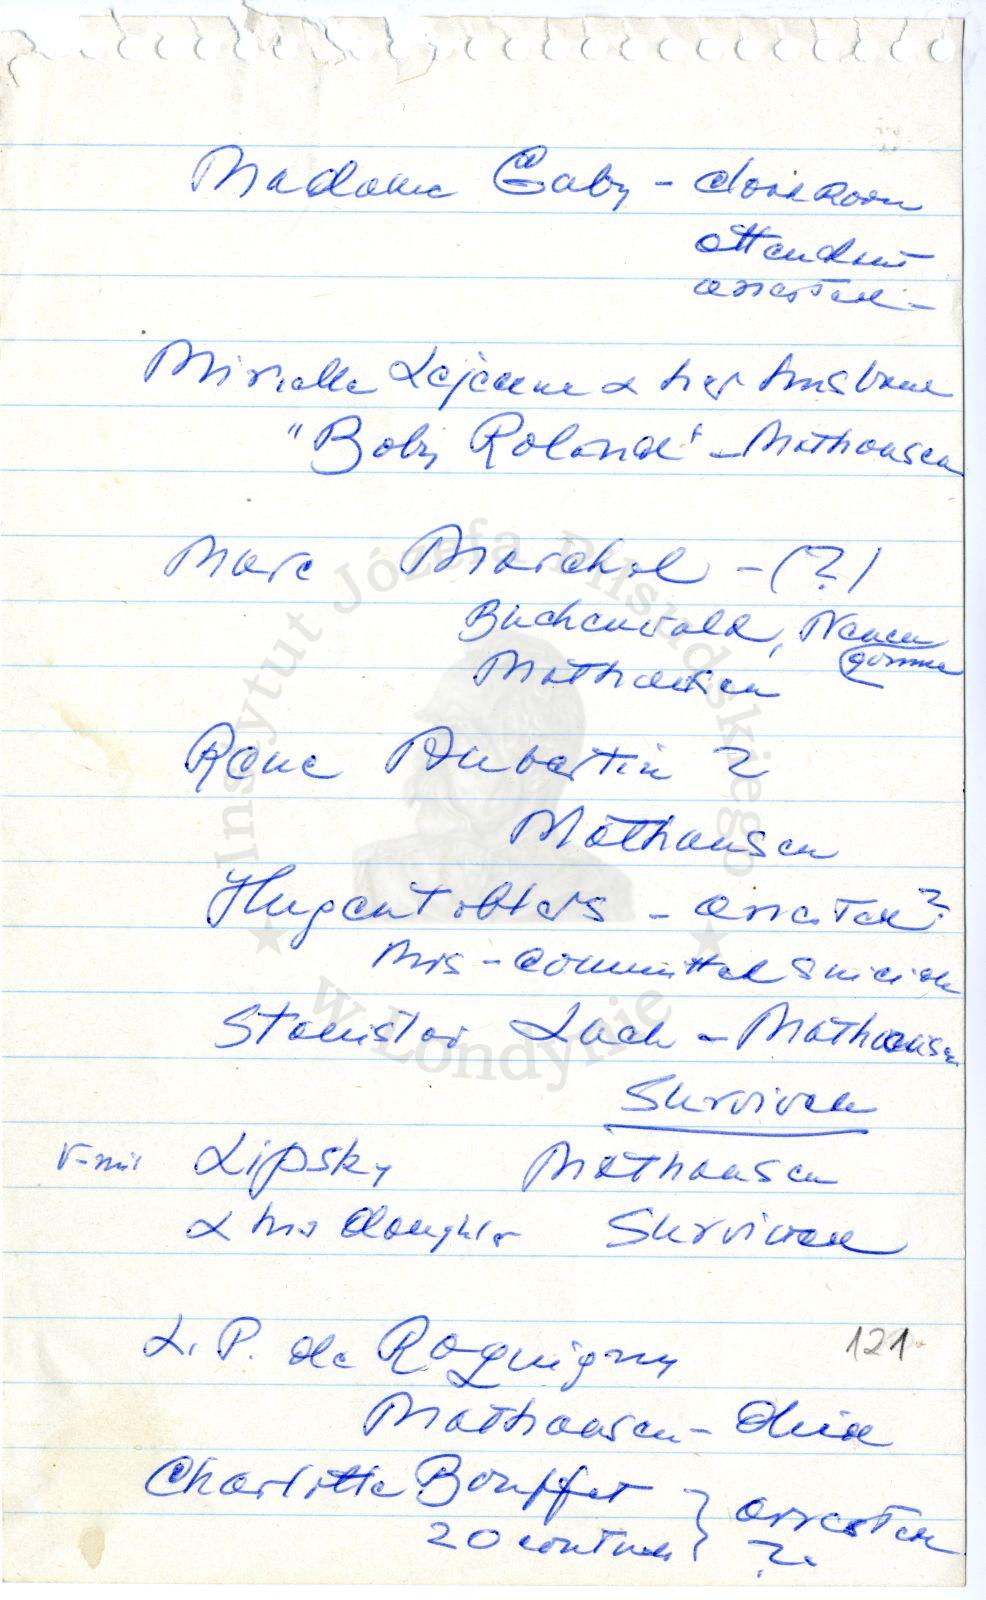 Madame Gaby - cloak Room
attendant
arrested -
Mireille Lejeune & her husband
"Boby Roland" - Mathausen
Marc Marchal - (?)
Buchenwald, Neuen
gamme
Mathausen
Rene Aubertin ?
Mathausen
Hugentoblers - arrested ?
Mrs - committed suicide
Stanislas Lach - Mathausen
Survived
Lipsky Mathausen
& his daughter Survived
L. P. de Roquigny
121.
Mathausen - Died
Charlotte Bouffet } arrested
20 contrées } ?.
Instytut Józefa Piłsudskiego
w Londynie